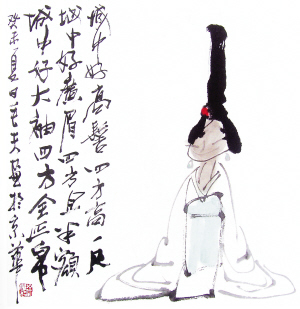 城中好高髻四方高一尺
城中好廣眉四方且半額
城中好大袖四方全匹帛
癸未夏日畫於京華